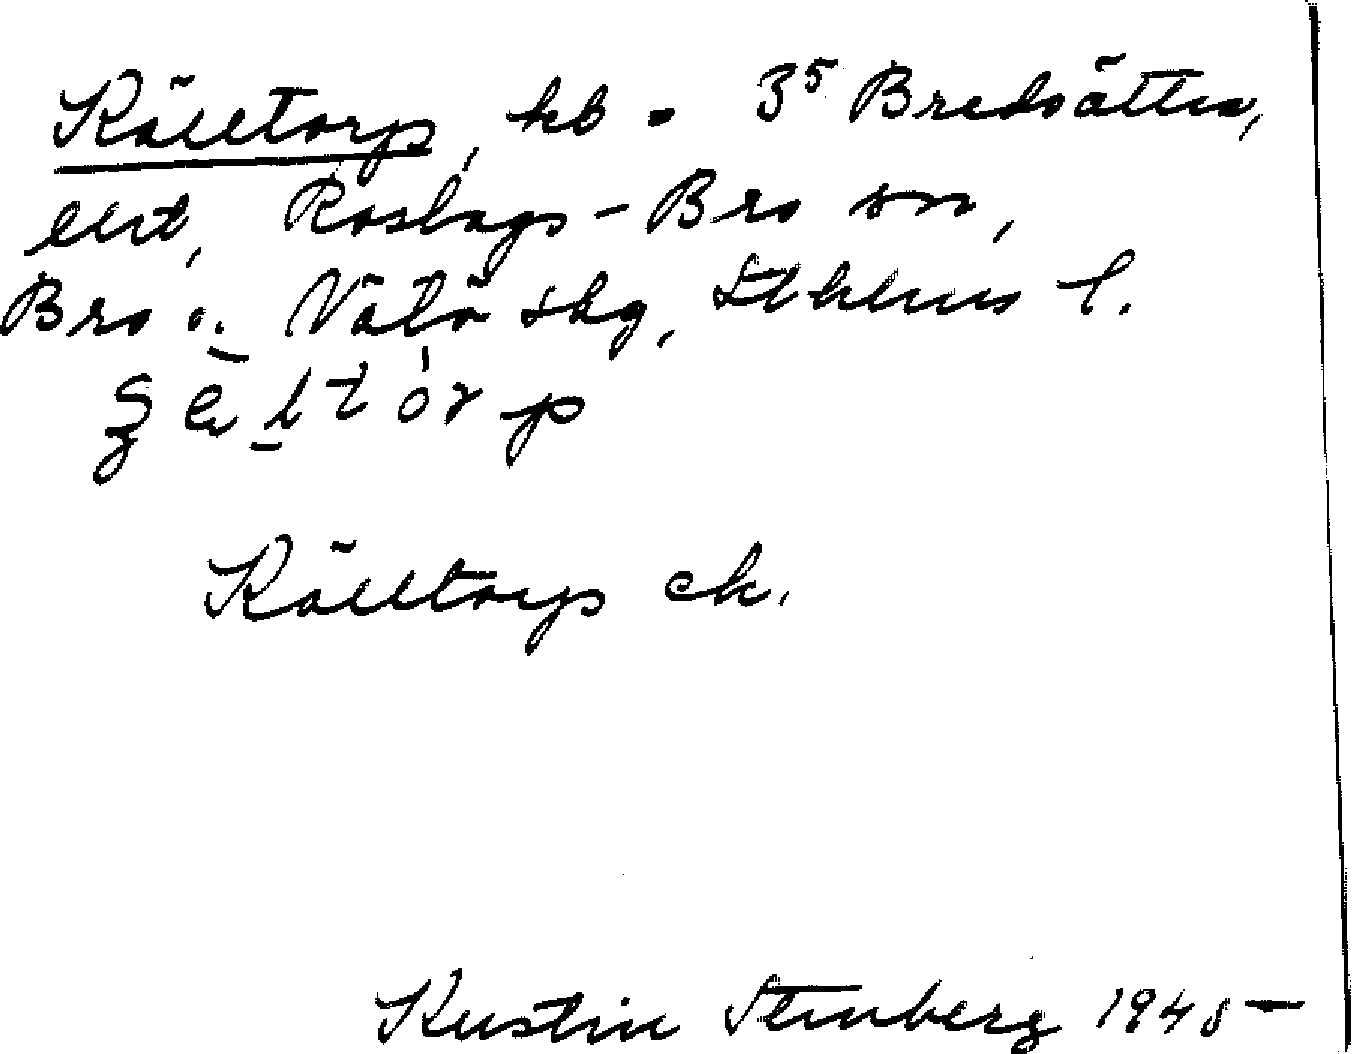 Källtorp, hb. 35 Bredsättra,
Roslags-Bro sn,
Bro o. Vätö skg, Sthlms l.
Källtorp ek.
Kerstin Stenberg 1945